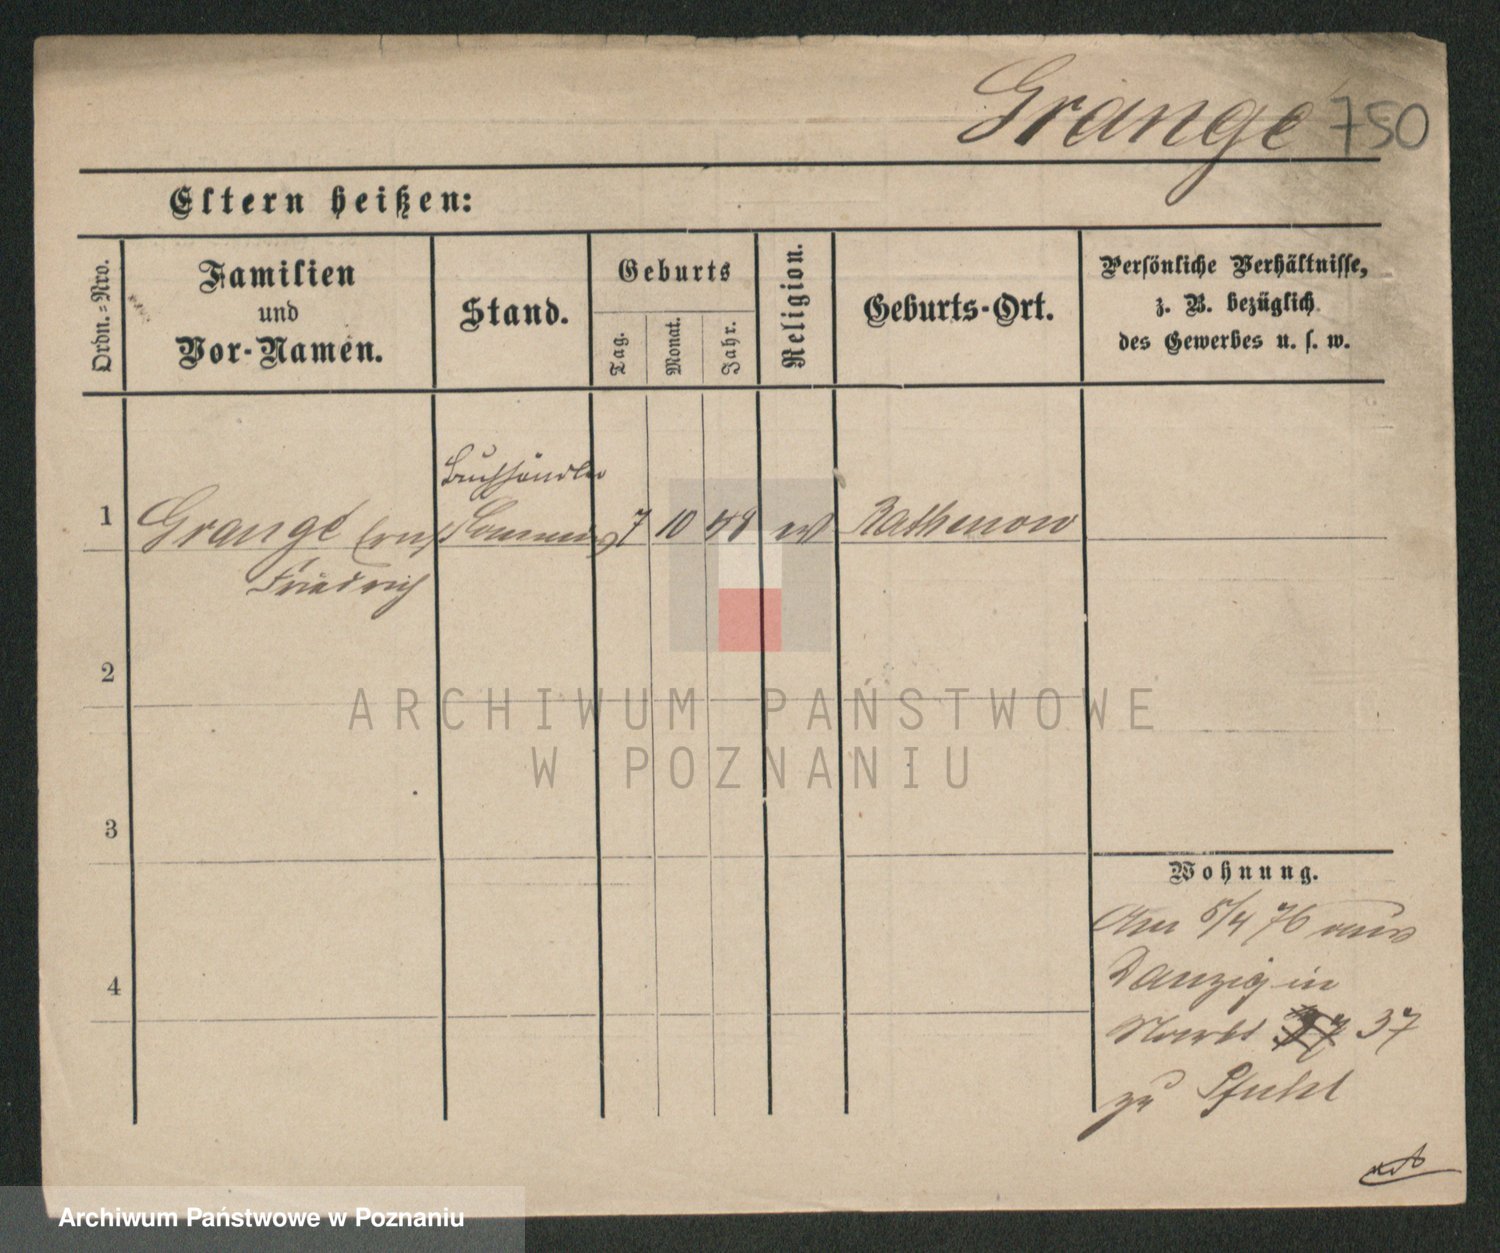 Grangé 750
Eltern heißen:
Ordn.-Nro.
Familien
und
Vor-Namen.
Stand.
Geburts
Tag.
Monat.
Jahr.
Religion.
Geburts-Ort.
Persönliche Verhältnisse,
z. B. bezüglich
des Gewerbes u. s. w.
Buchhändler
1 Grangé Ernst 7 10 48 ev Rathenow
Friedrich
2
3
4
Wohnung.
Am 5/4 76 aus
Danzig in
Markt 37
zu Pfuhl
ARCHIWUM PAŃSTWOWE
W POZNANIU
Archiwum Państwowe w Poznaniu